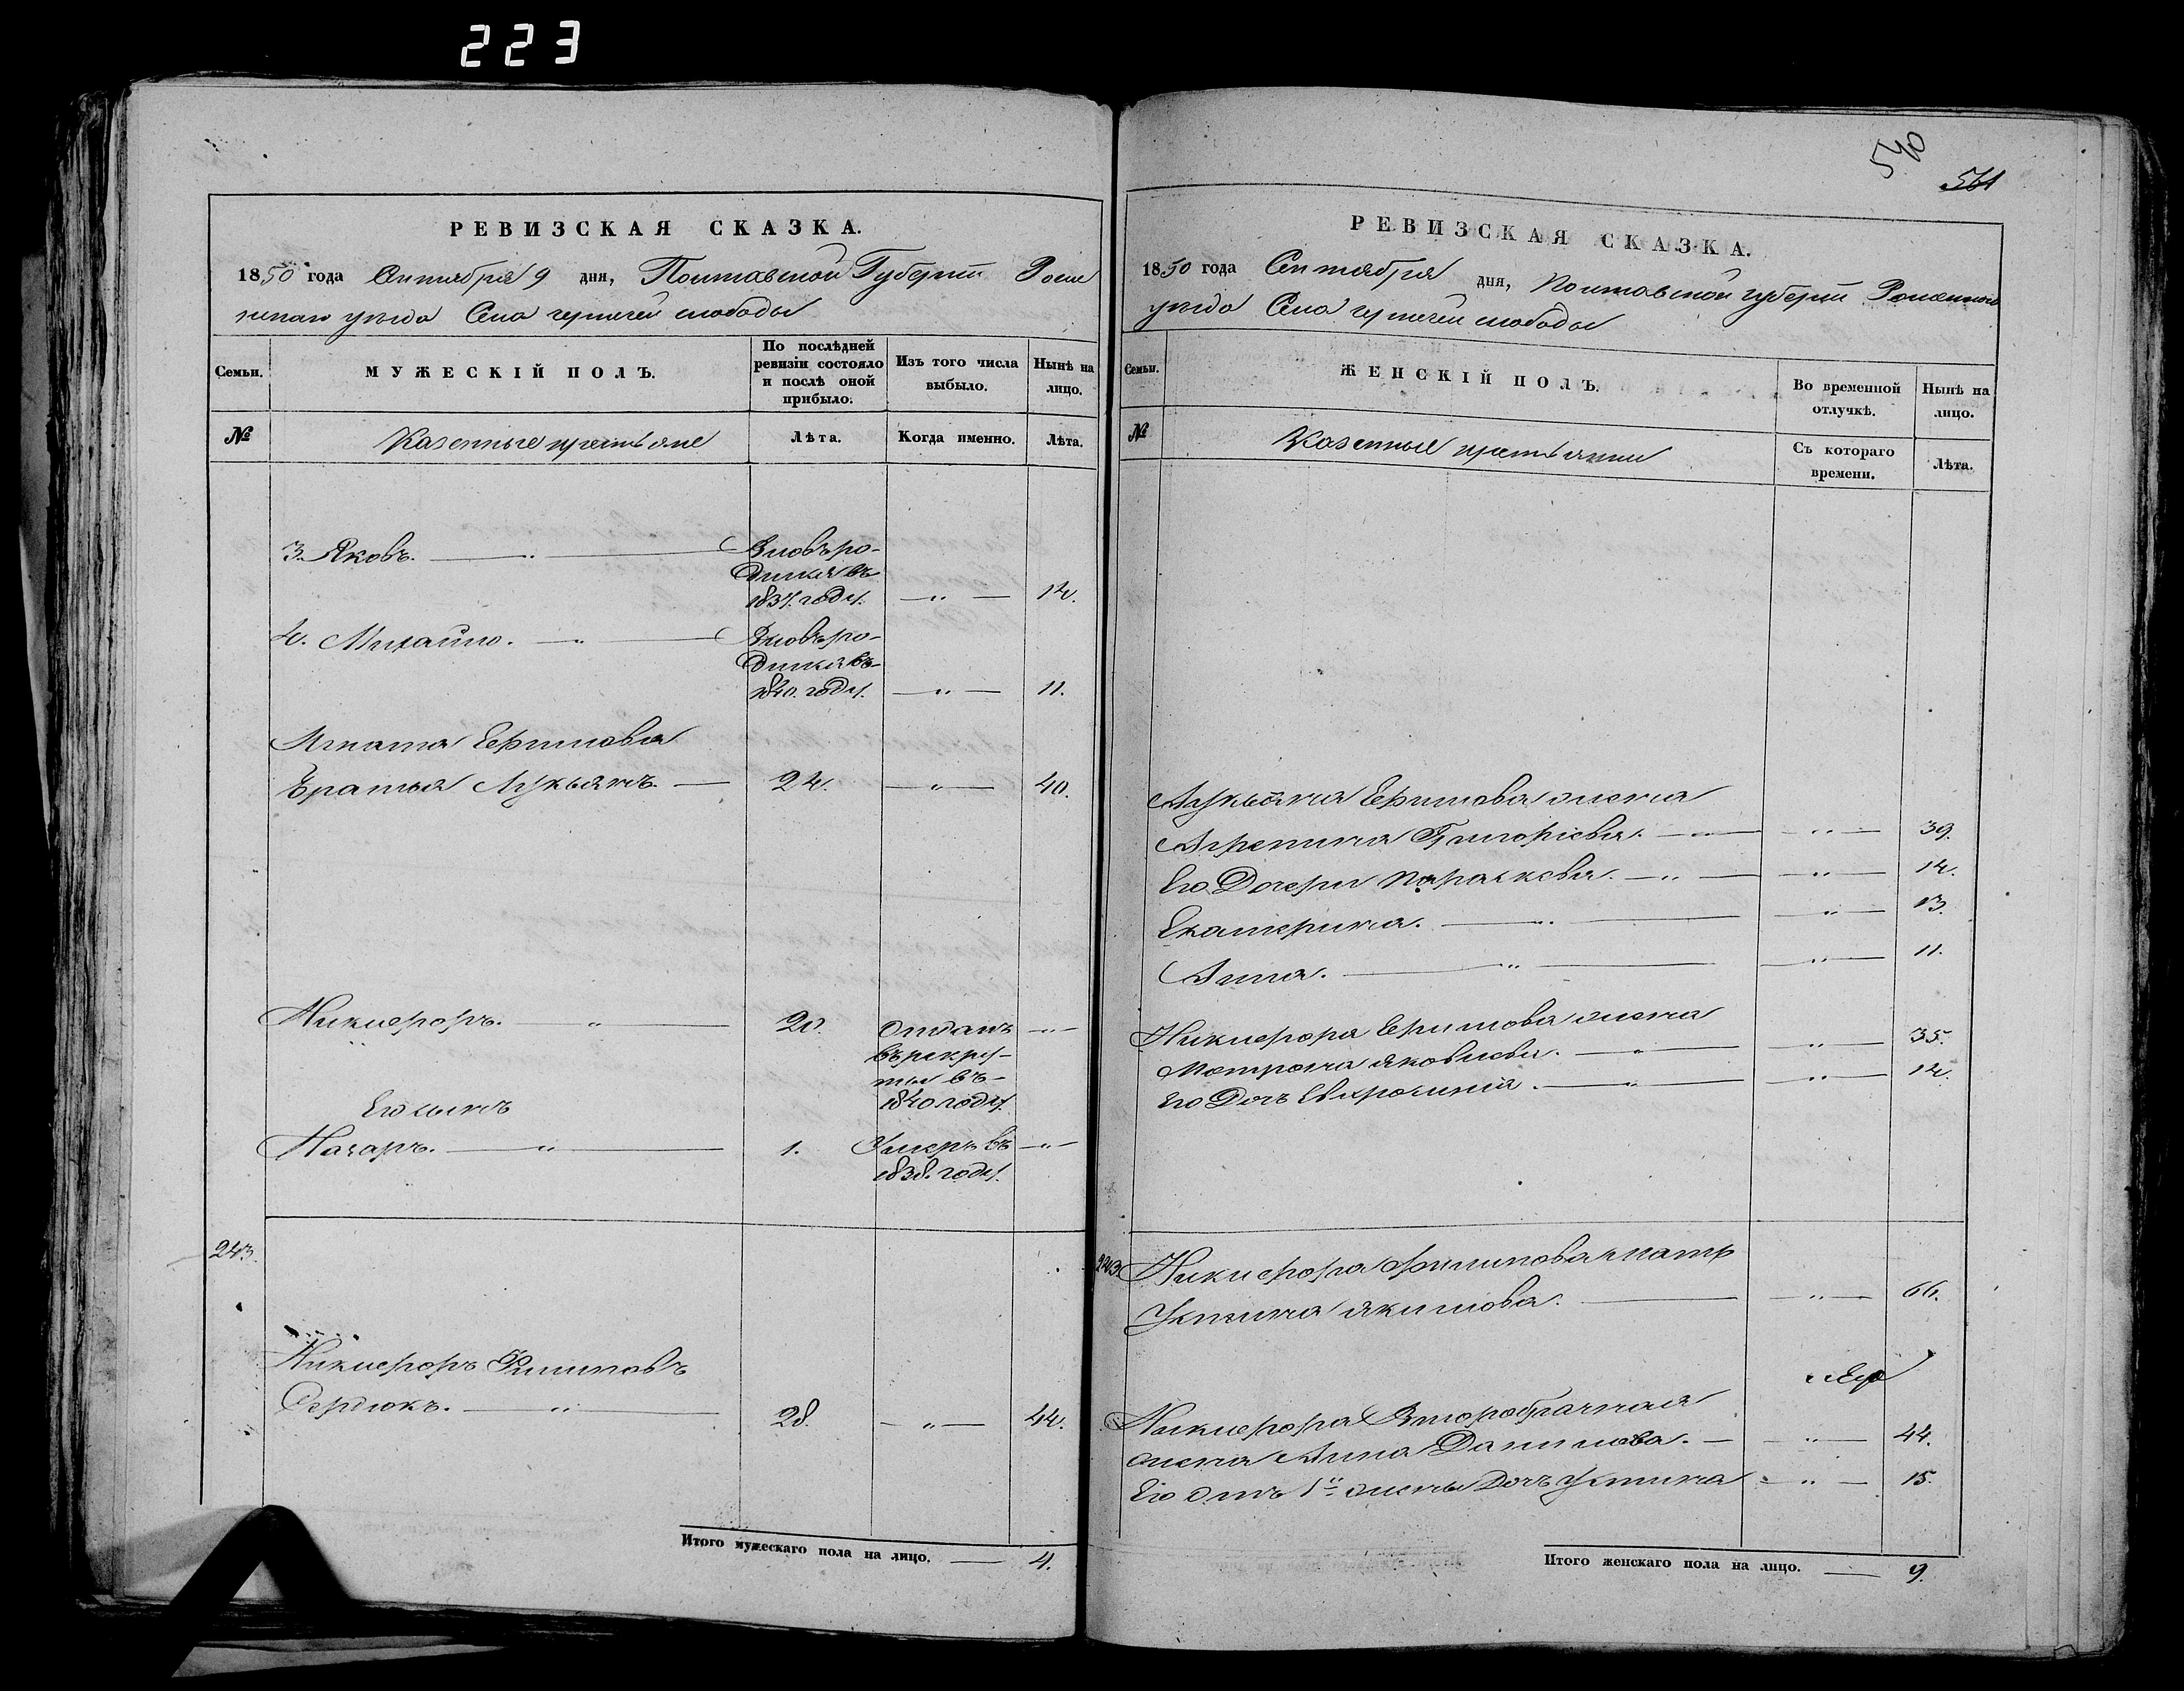 223
РЕВИЗСКАЯ СКАЗКА.
1850 года Сентября 9 дня, Полтавской Губерніи Ромен
скаго уезда Села чернечей слободы
Семьи.
МУЖЕСКІЙ ПОЛЪ.
По послѣдней ревизіи состояло и послѣ оной прибыло.
Изъ того числа выбыло.
Нынѣ на лицо.
№
Казенные крестьяне
Лѣта.
Когда именно.
Лѣта.
3. Яковъ. — „ — Вновь ро-
дился въ
1837. году. — „ — 14.
4. Михайло. — „ — Вновь ро-
дился въ
1840. году. — „ — 11.
Игната Ефимова
братья Лукьянъ. — 24. — „ — 40.
Никифоръ. — „ — 20. Отданъ — „ —
въ рекру-
ты въ
1840 году.
Его сынъ
Назаръ. — „ — 1. Умеръ въ — „ —
1838. году.
243.
Никифоръ Филиповъ
Сердюкъ. — „ — 28. — „ — 44.
Итого мужескаго пола на лицо. — 4.
540
561
РЕВИЗСКАЯ СКАЗКА.
1850 года Сентября дня, Полтавской губерніи Роменскаго
уезда Села чернечей слободы
Семьи.
ЖЕНСКІЙ ПОЛЪ.
Во временной отлучкѣ.
Нынѣ на лицо.
№
Казенные крестьянки
Съ котораго времени.
Лѣта.
Лукьяна Ефимова жена
Агрепина Григоріева. — „ — — „ — 39.
Его Дочери Параскева. — „ — — „ — 14.
Екатерина. — „ — — „ — 13.
Анна. — „ — — „ — 11.
Никифора Ефимова жена
Мотрона Яковлева. — „ — — „ — 35.
Его Дочь Евфросинія. — „ — — „ — 14.
243
Никифора Филипова мать
Устина Якимова. — — „ — 66.
Никифора Второбрачная
жена Анна Данилова. — — „ — 44.
Его отъ 1й жены Дочь Устина — „ — 15.
Итого женскаго пола на лицо. — 9.